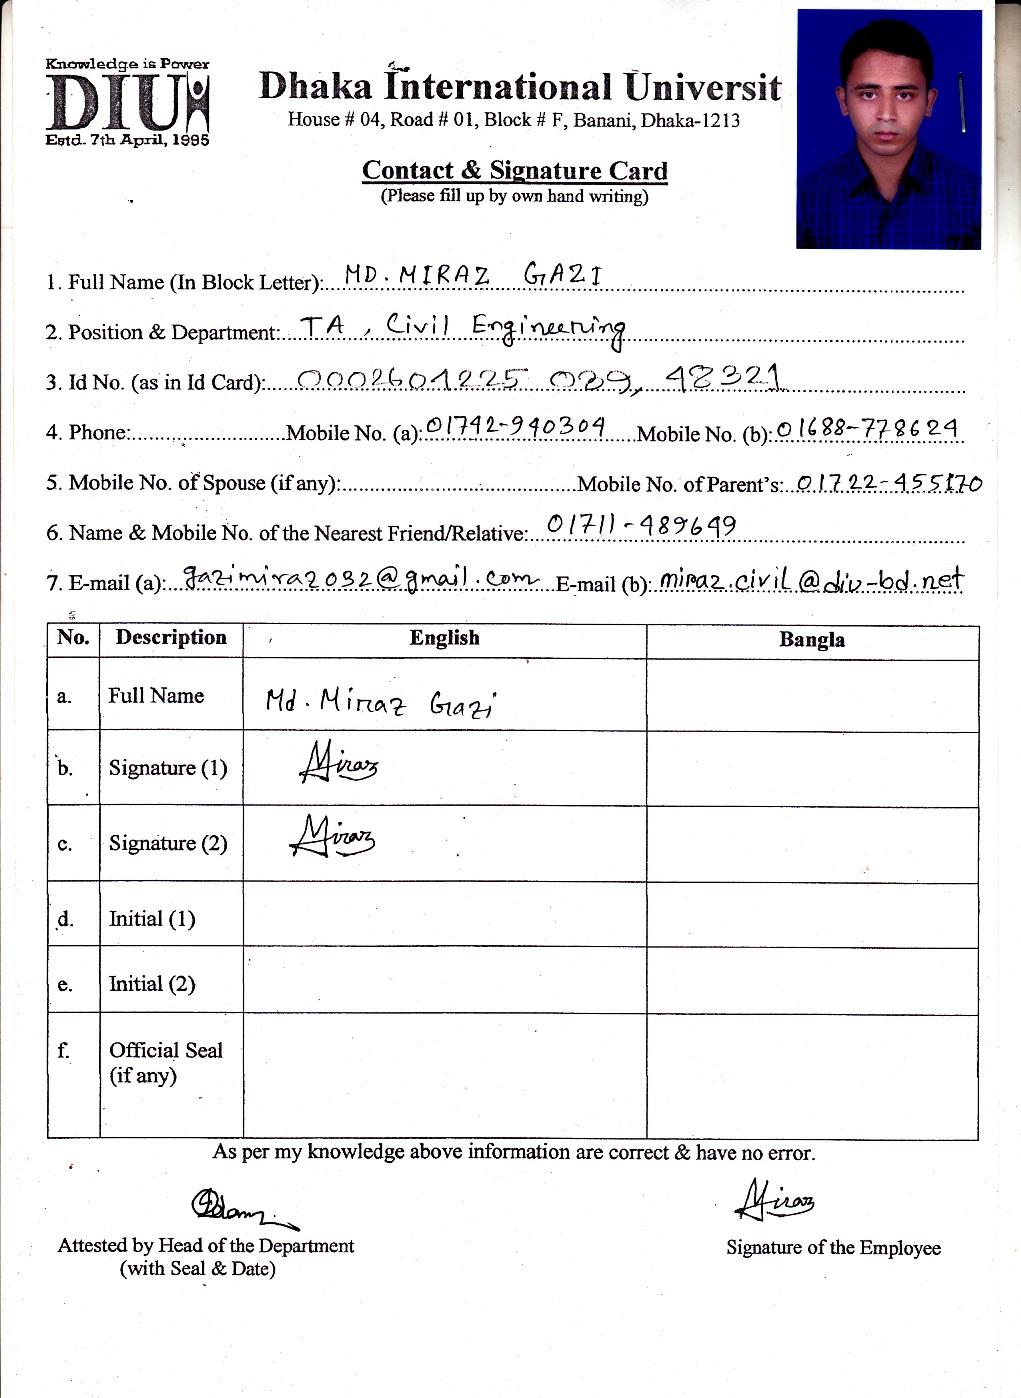 Knowledge is Power
DIU
Estd. 7th April, 1995
Dhaka International Universit
House # 04, Road # 01, Block # F, Banani, Dhaka-1213
Contact & Signature Card
(Please fill up by own hand writing)
1. Full Name (In Block Letter):...MD. MIRAZ GAZI
2. Position & Department:...TA, Civil Engineering
3. Id No. (as in Id Card):...0002601225 029, 48321
4. Phone:...Mobile No. (a):01742-940304...Mobile No. (b):01688-778624
5. Mobile No. of Spouse (if any):...Mobile No. of Parent's:..01722-455170
6. Name & Mobile No. of the Nearest Friend/Relative:...01711-489649
7. E-mail (a):...gazimiraz032@gmail.com...E-mail (b):miraz.civil@diu-bd.net
No. Description English Bangla
a. Full Name Md. Miraz Gazi
b. Signature (1) Miraz
c. Signature (2) Miraz
d. Initial (1)
e. Initial (2)
f. Official Seal
(if any)
As per my knowledge above information are correct & have no error.
Miraz
Attested by Head of the Department Signature of the Employee
(with Seal & Date)